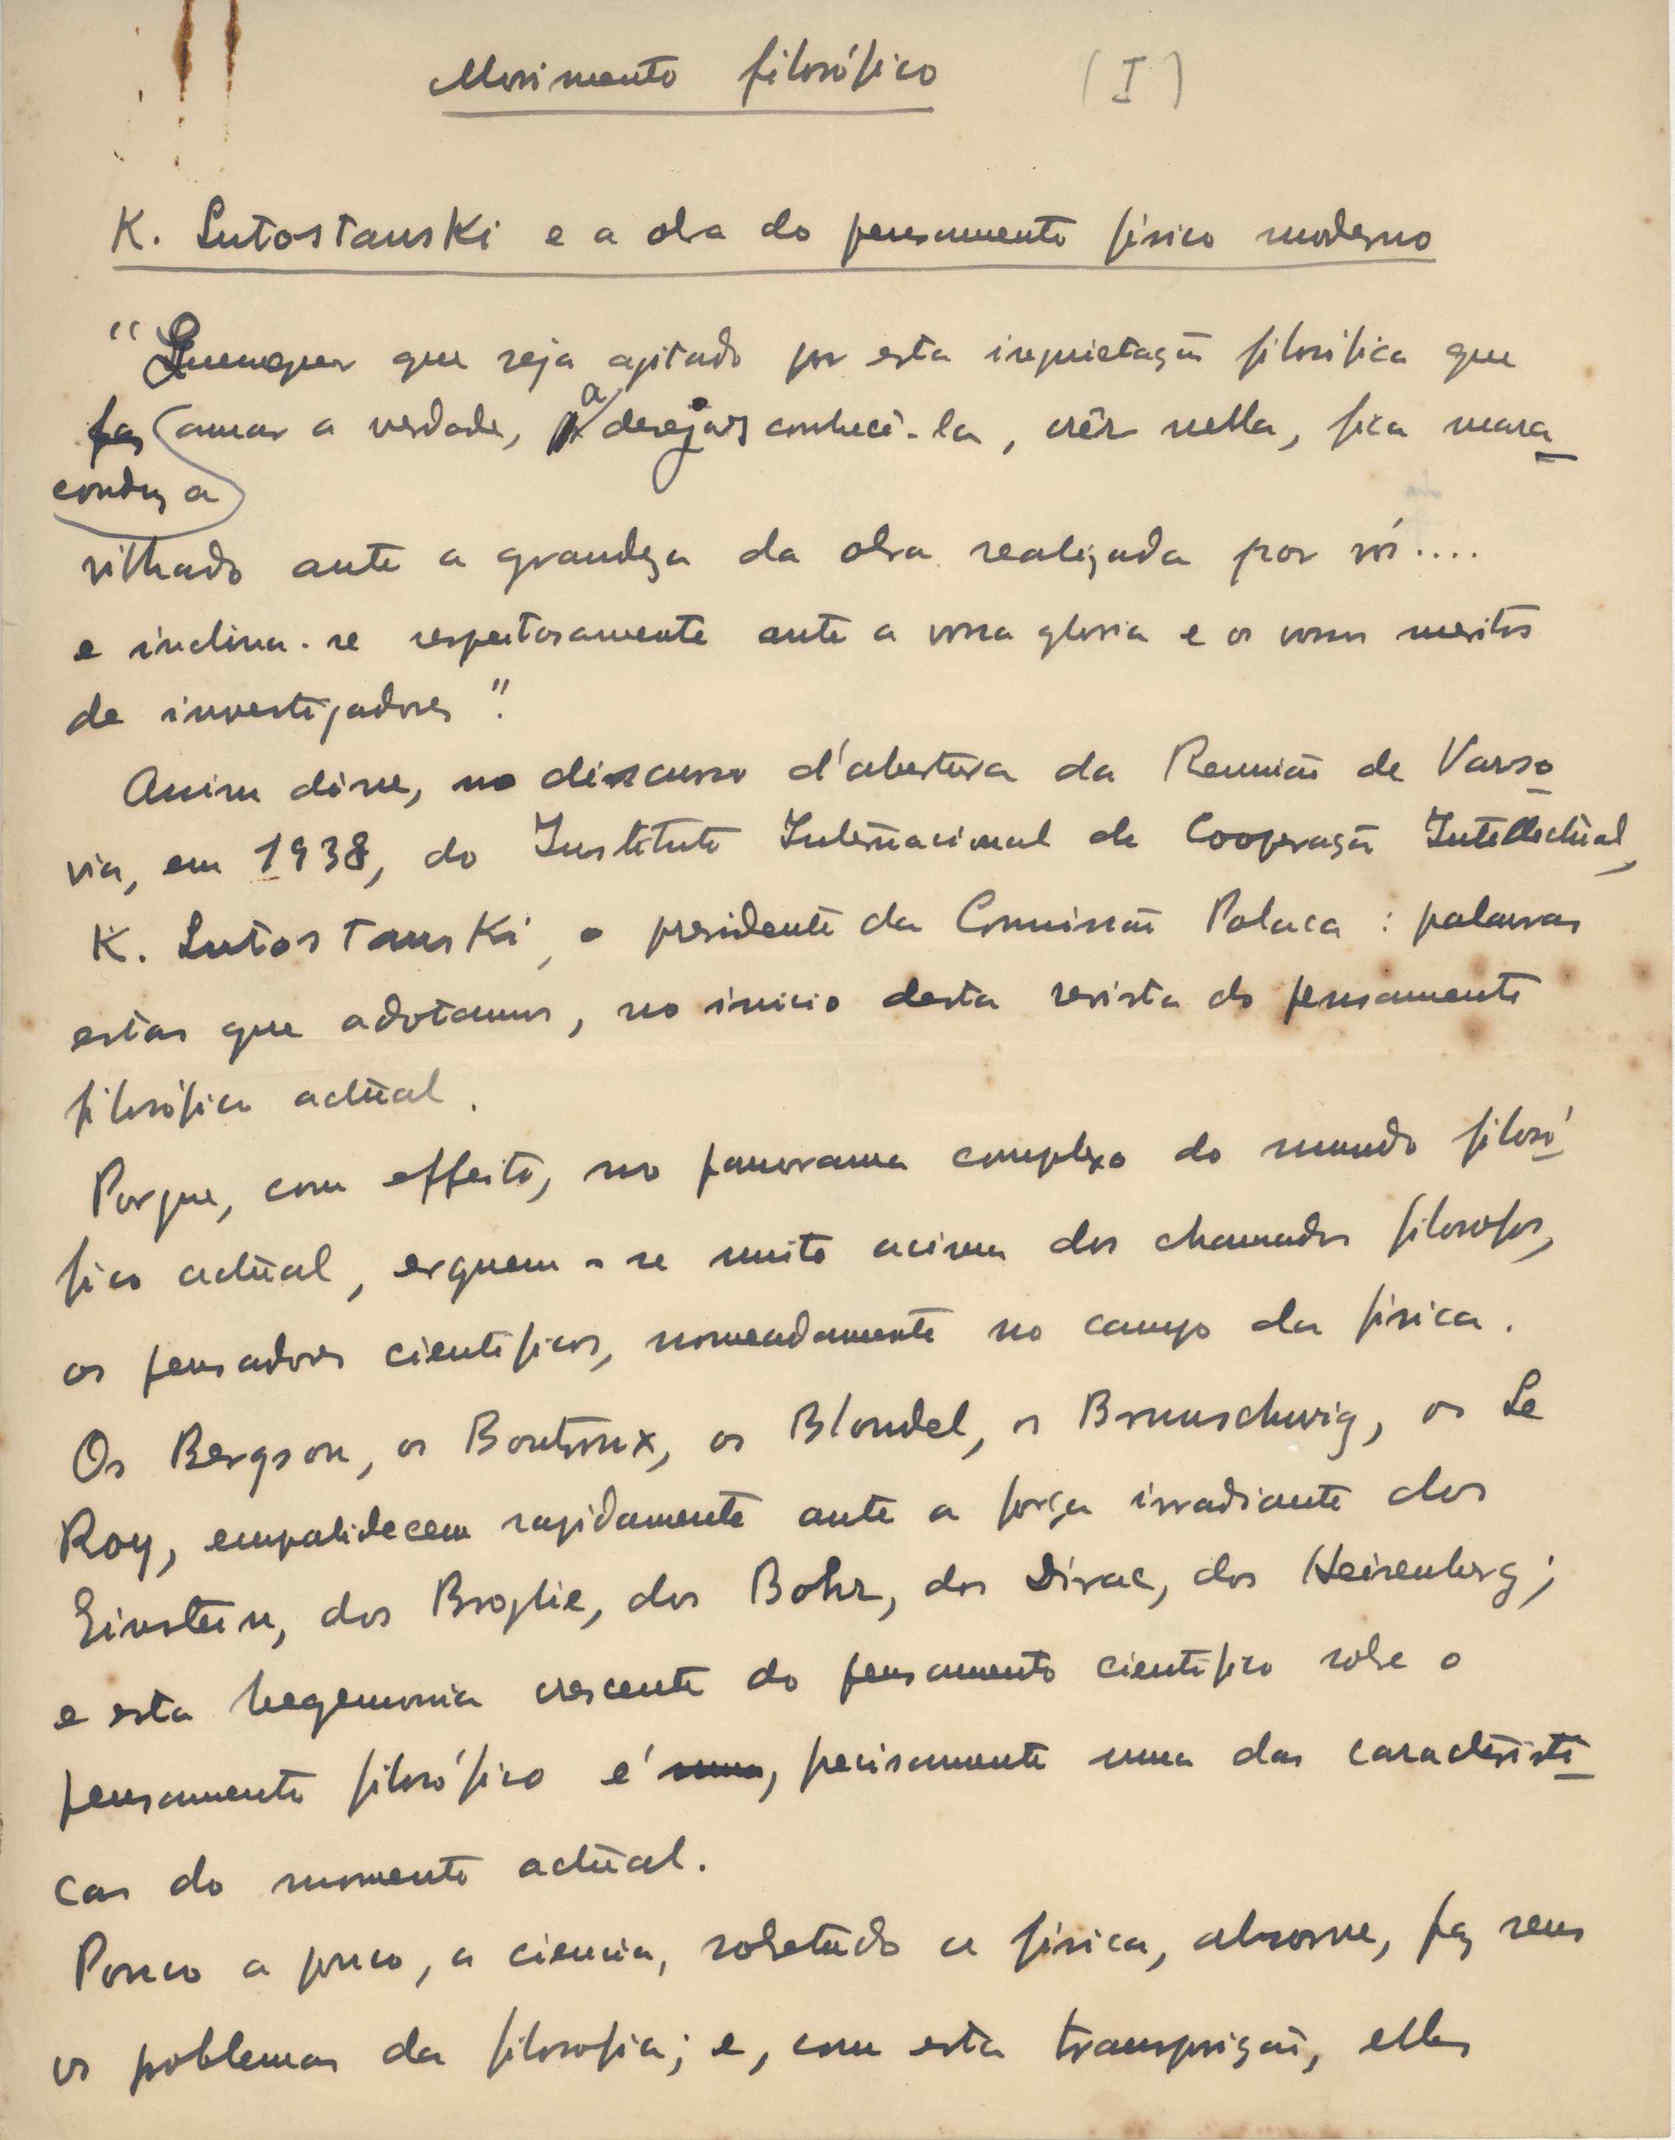 Movimento filosófico (I)
K. Lutostanski e a obra do pensamento físico moderno
"Quemquer que seja agitado por esta inquietação filosófica que
faz amar a verdade, a desejar conhecê-la, crêr nella, fica mara
conduz a
vilhado ante a grandeza da obra realizada por vós....
e inclina-se respeitosamente ante a vossa gloria e os vossos meritos
de investigadores".
Assim disse, no discurso d'abertura da Reunião de Varso
via, em 1938, do Instituto Internacional de Cooperação Intellectual,
K. Lutostanski, o presidente da Comissão Polaca: palavras
estas que adotamos, no inicio desta revista do pensamento
filosófico actual.
Porque, com effeito, no panorama complexo do mundo filosó
fico actual, erguem-se muito acima dos chamados filosofos,
os pensadores cientificos, nomeadamente no campo da física.
Os Bergson, os Boutroux, os Blondel, os Brunschwig, os Le
Roy, empalidecem rapidamente ante a força irradiante dos
Einstein, dos Broglie, dos Bohr, dos Dirac, dos Heisenberg;
e esta hegemonia crescente do pensamento cientifico sobre o
pensamento filosófico é, precisamente uma das caracteristi
cas do momento actual.
Pouco a pouco, a ciencia, sobretudo a física, absorve, faz seus
os problemas da filosofia; e, com esta transposição, elles